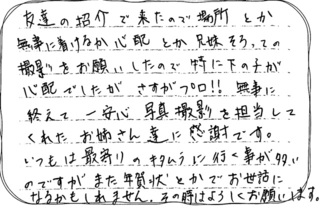 友達の紹介で来たので場所とか
無事に着けるか心配とか兄妹そろっての
撮影をお願いしたので特に下の子が
心配でしたがさすがプロ!!無事に
終えて一安心写真撮影を担当して
くれたお姉さん達に感謝です。
いつもは最寄りのキタムラに行く事が多い
のですがまた年賀状とかでお世話に
なるかもしれません。その時はよろしくお願います。